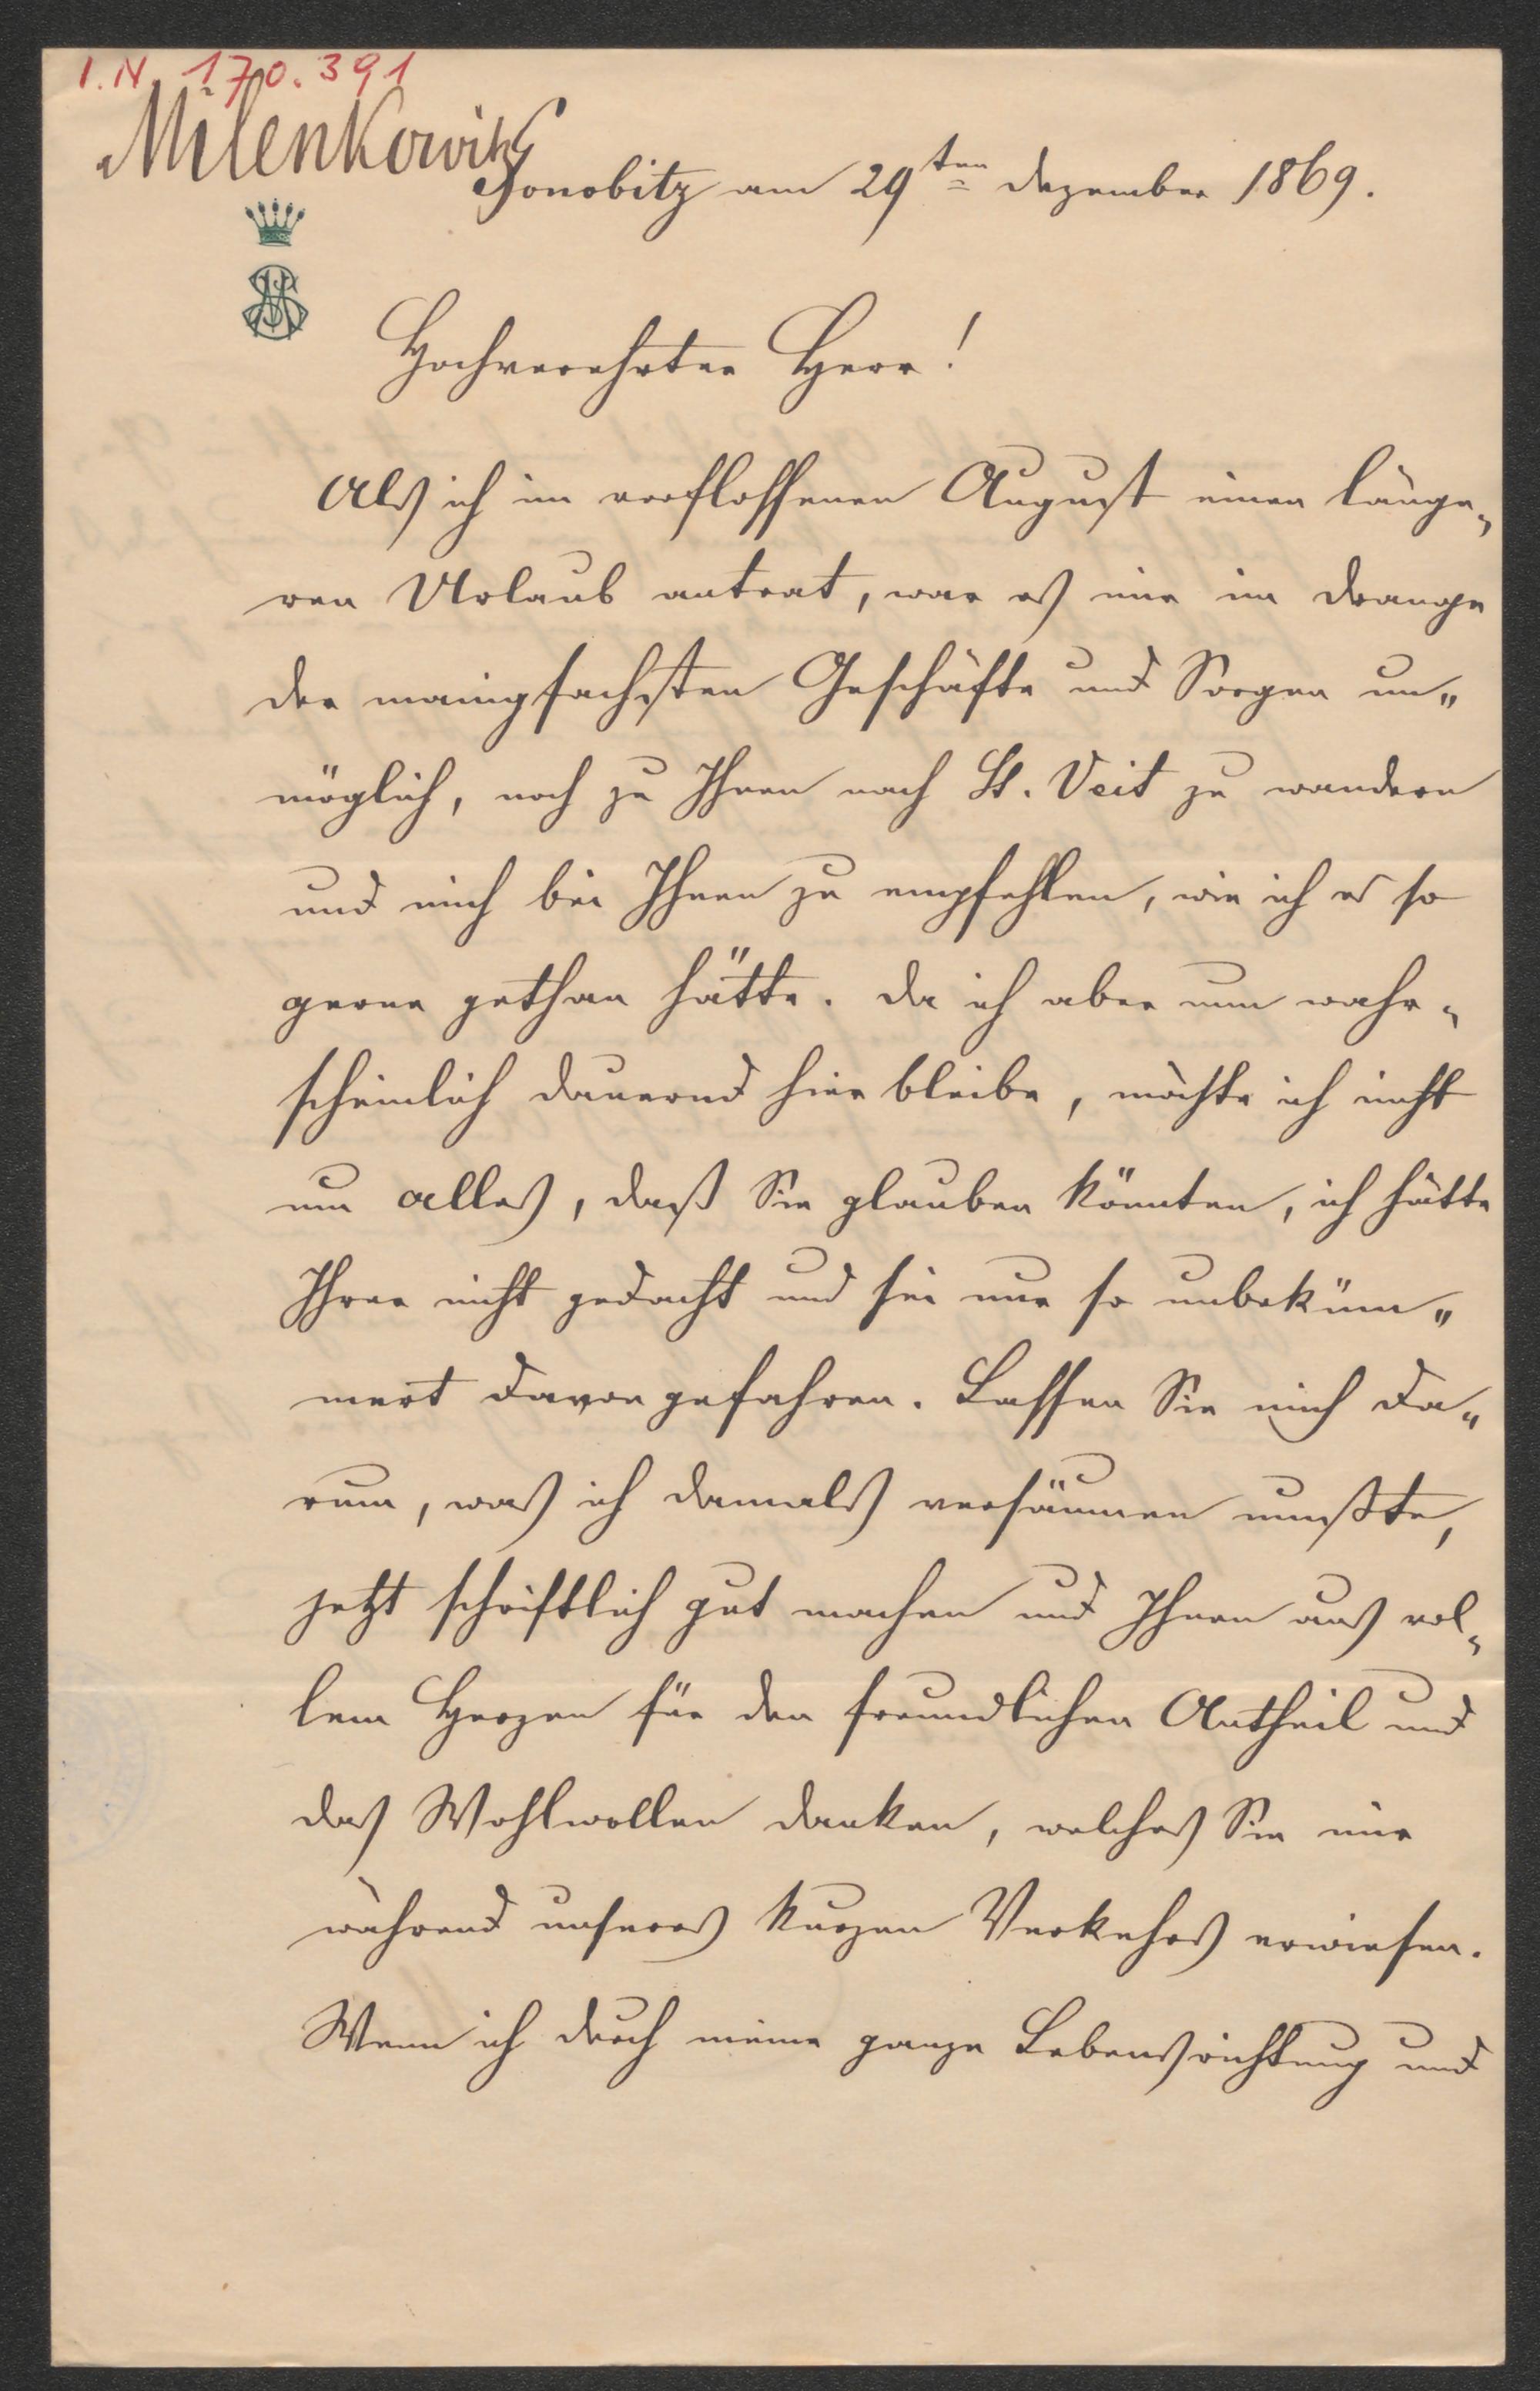 I.N. 170.391
Milenkowitz
Gonobitz am 29ten Dezember 1869.
Hochverehrter Herr!
Als ich im verflossenen August einen länge-
ren Urlaub antrat, war es mir im Drange
der manigfachsten Geschäfte und Sorgen un-
möglich, noch zu Ihnen nach St. Veit zu wandern
und mich bei Ihnen zu empfehlen, wie ich es so
gerne gethan hätte. Da ich aber nun wahr-
scheinlich dauernd hier bleibe, möchte ich nicht
um alles, daß Sie glauben könnten, ich hätte
Ihrer nicht gedacht und sei nur so unbeküm-
mert davon gefahren. Lassen Sie mich da-
rum, was ich damals versäumen mußte,
jetzt schriftlich gut machen und Ihnen aus vol-
lem Herzen für den freundlichen Antheil und
das Wohlwollen danken, welches Sie mir
während unseres kurzen Verkehrs erwiesen.
Wenn ich durch meine ganze Lebensrichtung und